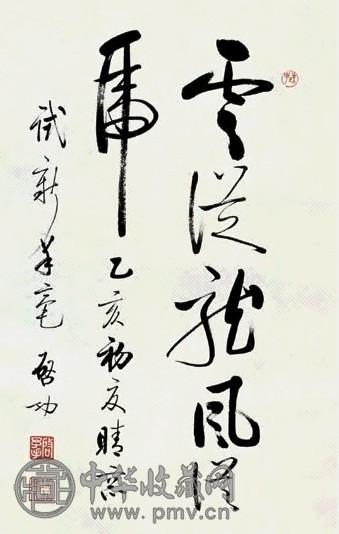 雲從龍風從
虎 乙亥初夏晴窗
試新羊毫 啓功
中华收藏网
www.pmv.cn